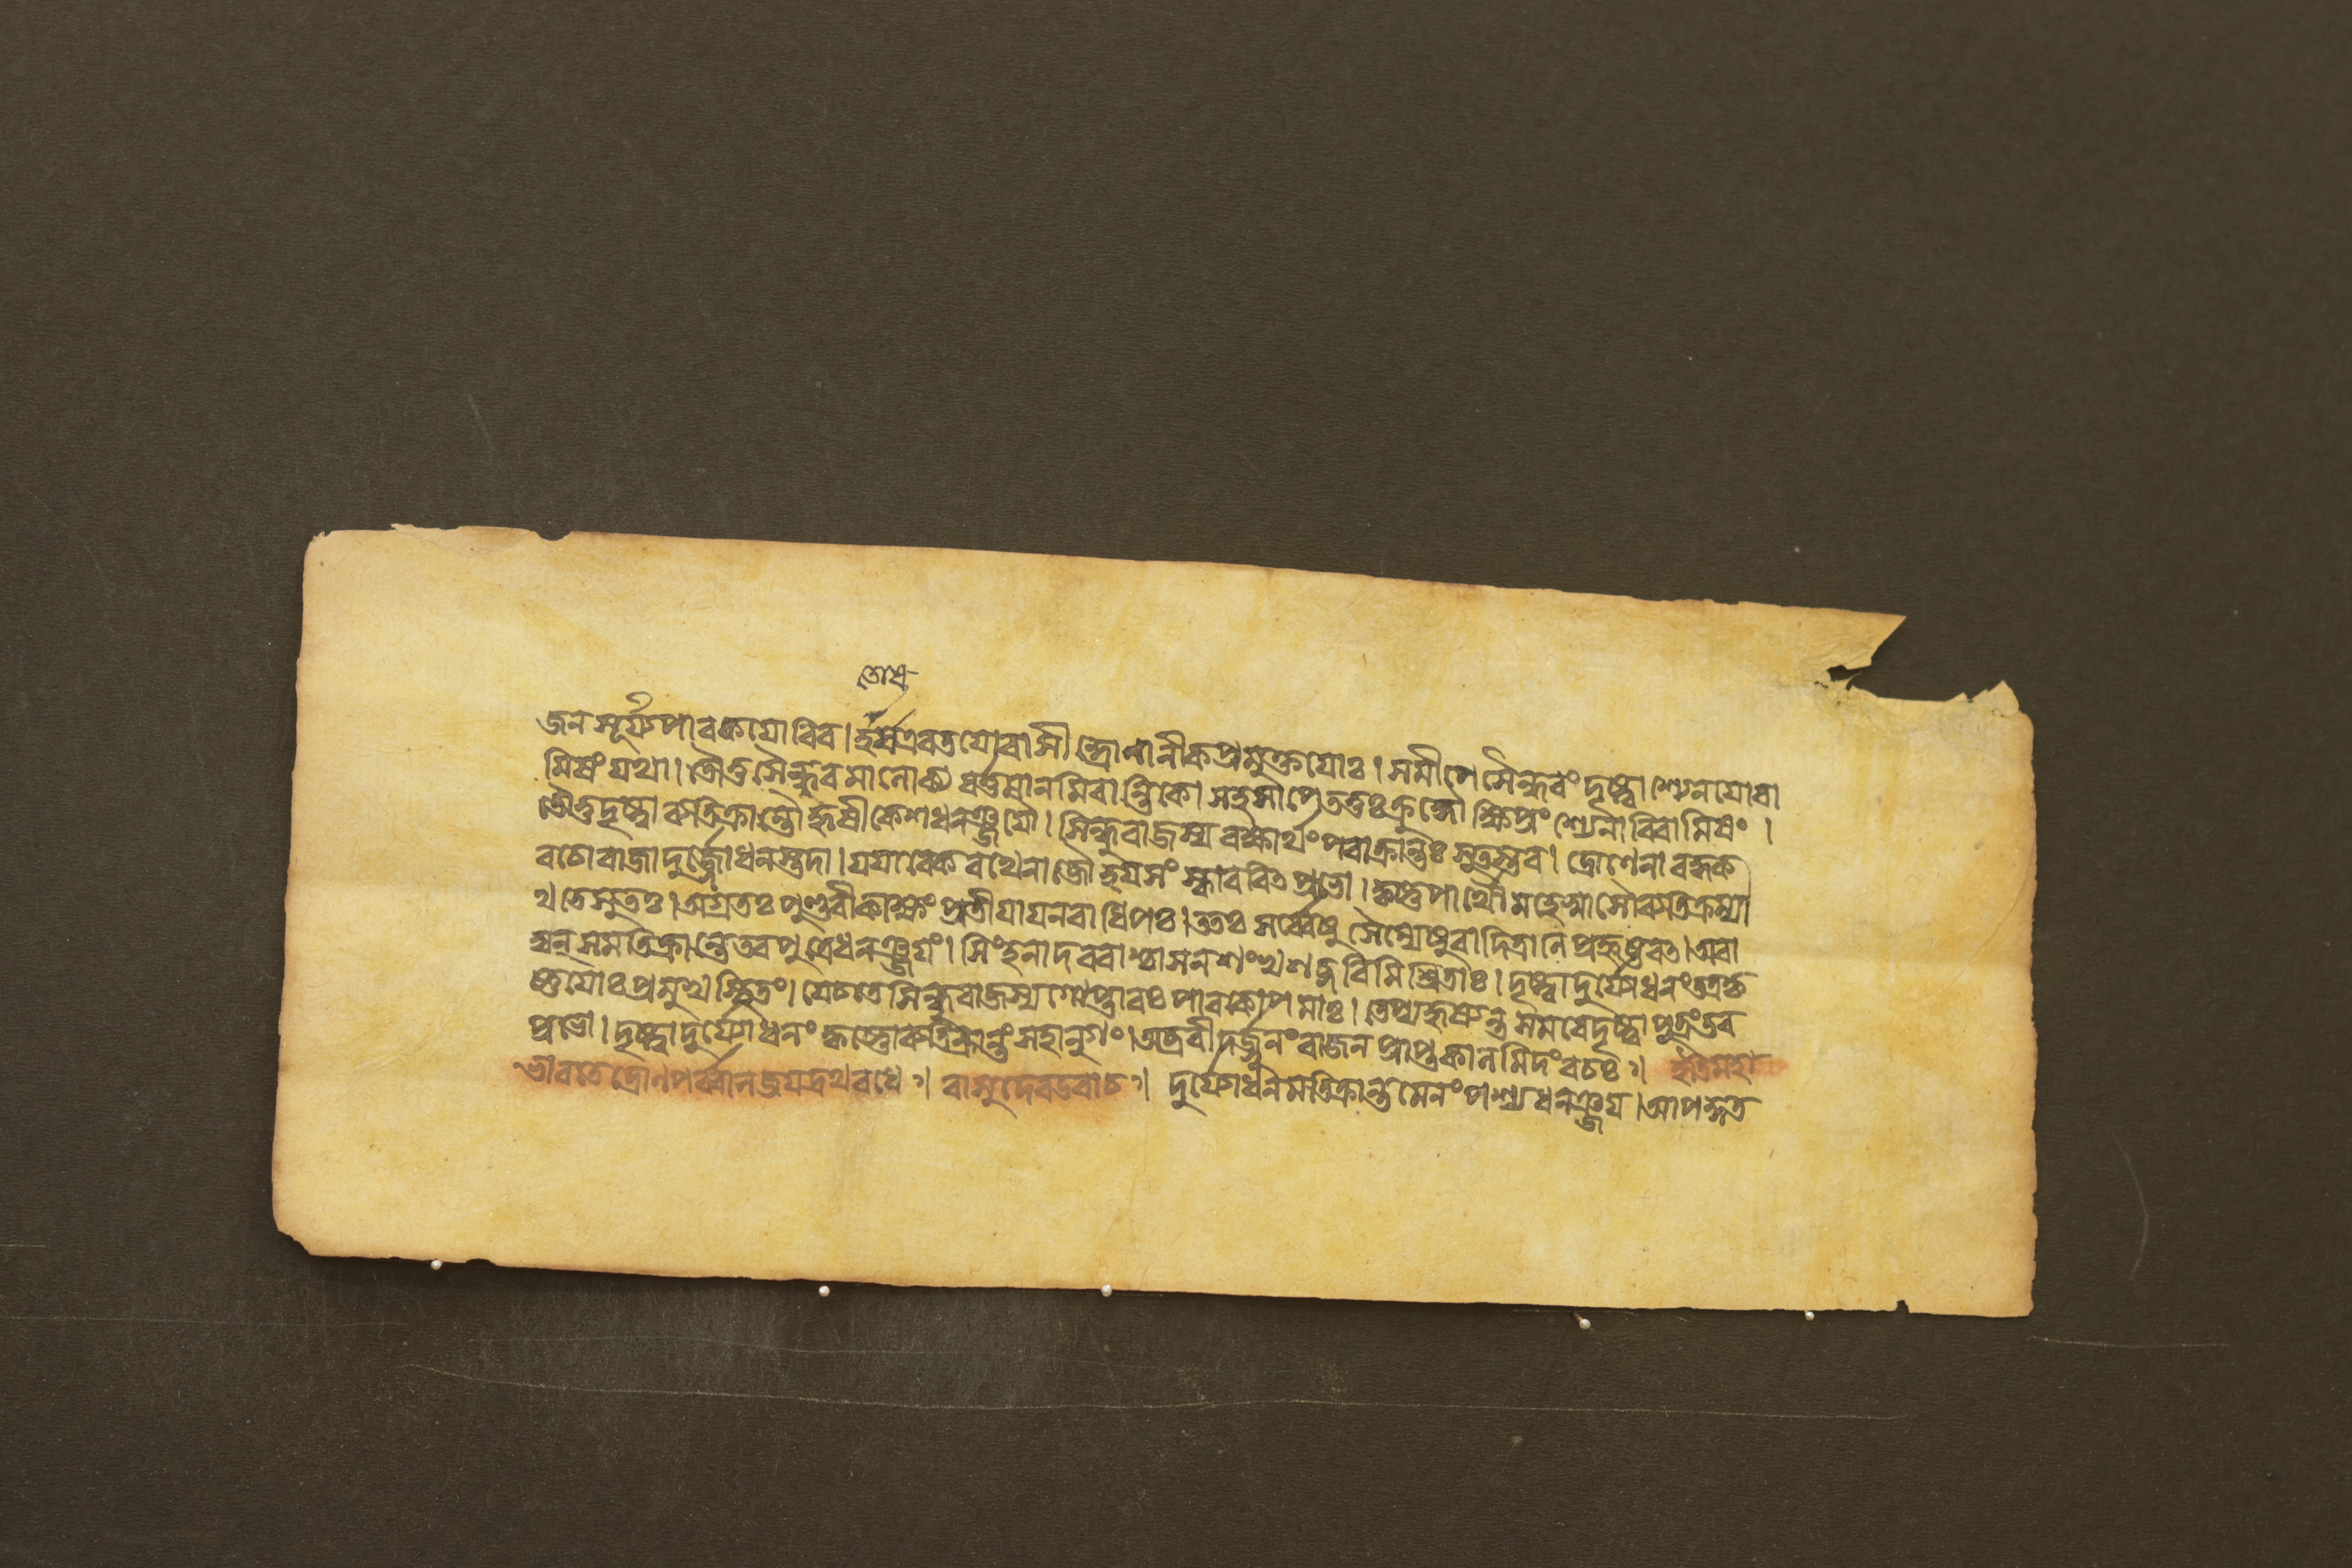 তোধ
জন সূর্য্যপাবকযোবিব। হর্ষএবতযোবাসী দ্দ্রোণানীকপ্রমুক্তযোঃ। সমীপে সৈন্ধবং দৃষ্ট্বা শ্যেনযোবা
মিষং যথা। তৌতু সৈন্ধবমালোক্য বর্ত্তমানমিবান্তিকে। সহসা পেততুঃ ক্রুদ্ধৌ ক্ষিপ্রং শ্যেনাবিবামিষং।
তৌতু দৃষ্ট্বা ব্যতিক্রান্তৌ হৃষীকেশধনঞ্জযৌ। সিন্ধুবাজস্য বক্ষার্থং পবাক্রান্তঃ সুতস্তব। দ্রোণেনাবদ্ধক
বচো বাজা দুর্জ্জোধনস্তদা। যযাবেকবথেনাজৌ হযসংস্কাববিৎ প্রভো। কৃষ্ণপার্থৌ মহেষ্বাসৌ ব্যতিক্রম্যা
থ তে সুতঃ। অগ্রতঃ পুণ্ডবীকাক্ষং প্রতীযাযনবাধিপঃ। ততঃ সর্ব্বেষু সৈন্যেষু বাদিত্রানি প্রহৃষ্টবৎ। অবা
দ্যন্ সমতিক্রান্তে তবপুত্রে ধনঞ্জযং। সিংহনাদববাশ্চাসন শংখশব্দবিমিশ্রিতাঃ। দৃষ্ট্বা দুর্যোধনং তত্রকৃ
ষ্ণযোঃ প্রমুখে স্থিতং। যেচতে সিন্ধুবাজস্য গোপ্তাবঃ পাবকোপমাঃ। তে প্যহৃষ্যন্ত সমবে দৃষ্ট্বা পুত্রং তব
প্রভো। দৃষ্ট্বা দুর্যোধনং কৃষ্ণো ব্যতিক্রান্তং সহানুগং। অব্রবীদর্জ্জুনং বাজন প্রাপ্তকালমিদং বচঃ৺। ইতিমহা
ভাবতে দ্রোণপর্ব্বানি জযদ্রথবধে৺। বাসুদেবউবাচ৺। দুর্যোধনমতিক্রান্তমেনং পশ্য ধনঞ্জয। আপদ্গত